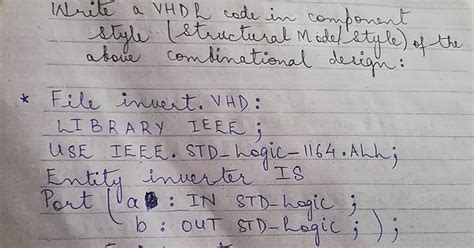 Write a VHDL code in component
style (Structural Model Style) of the
above combinational design:
* File invert.VHD:
LIBRARY IEEE ;
USE IEEE. STD_Logic_1164.ALL;
Entity inverter IS
Port ( a : IN STD_Logic ;
b : OUT STD_Logic ; ) ;